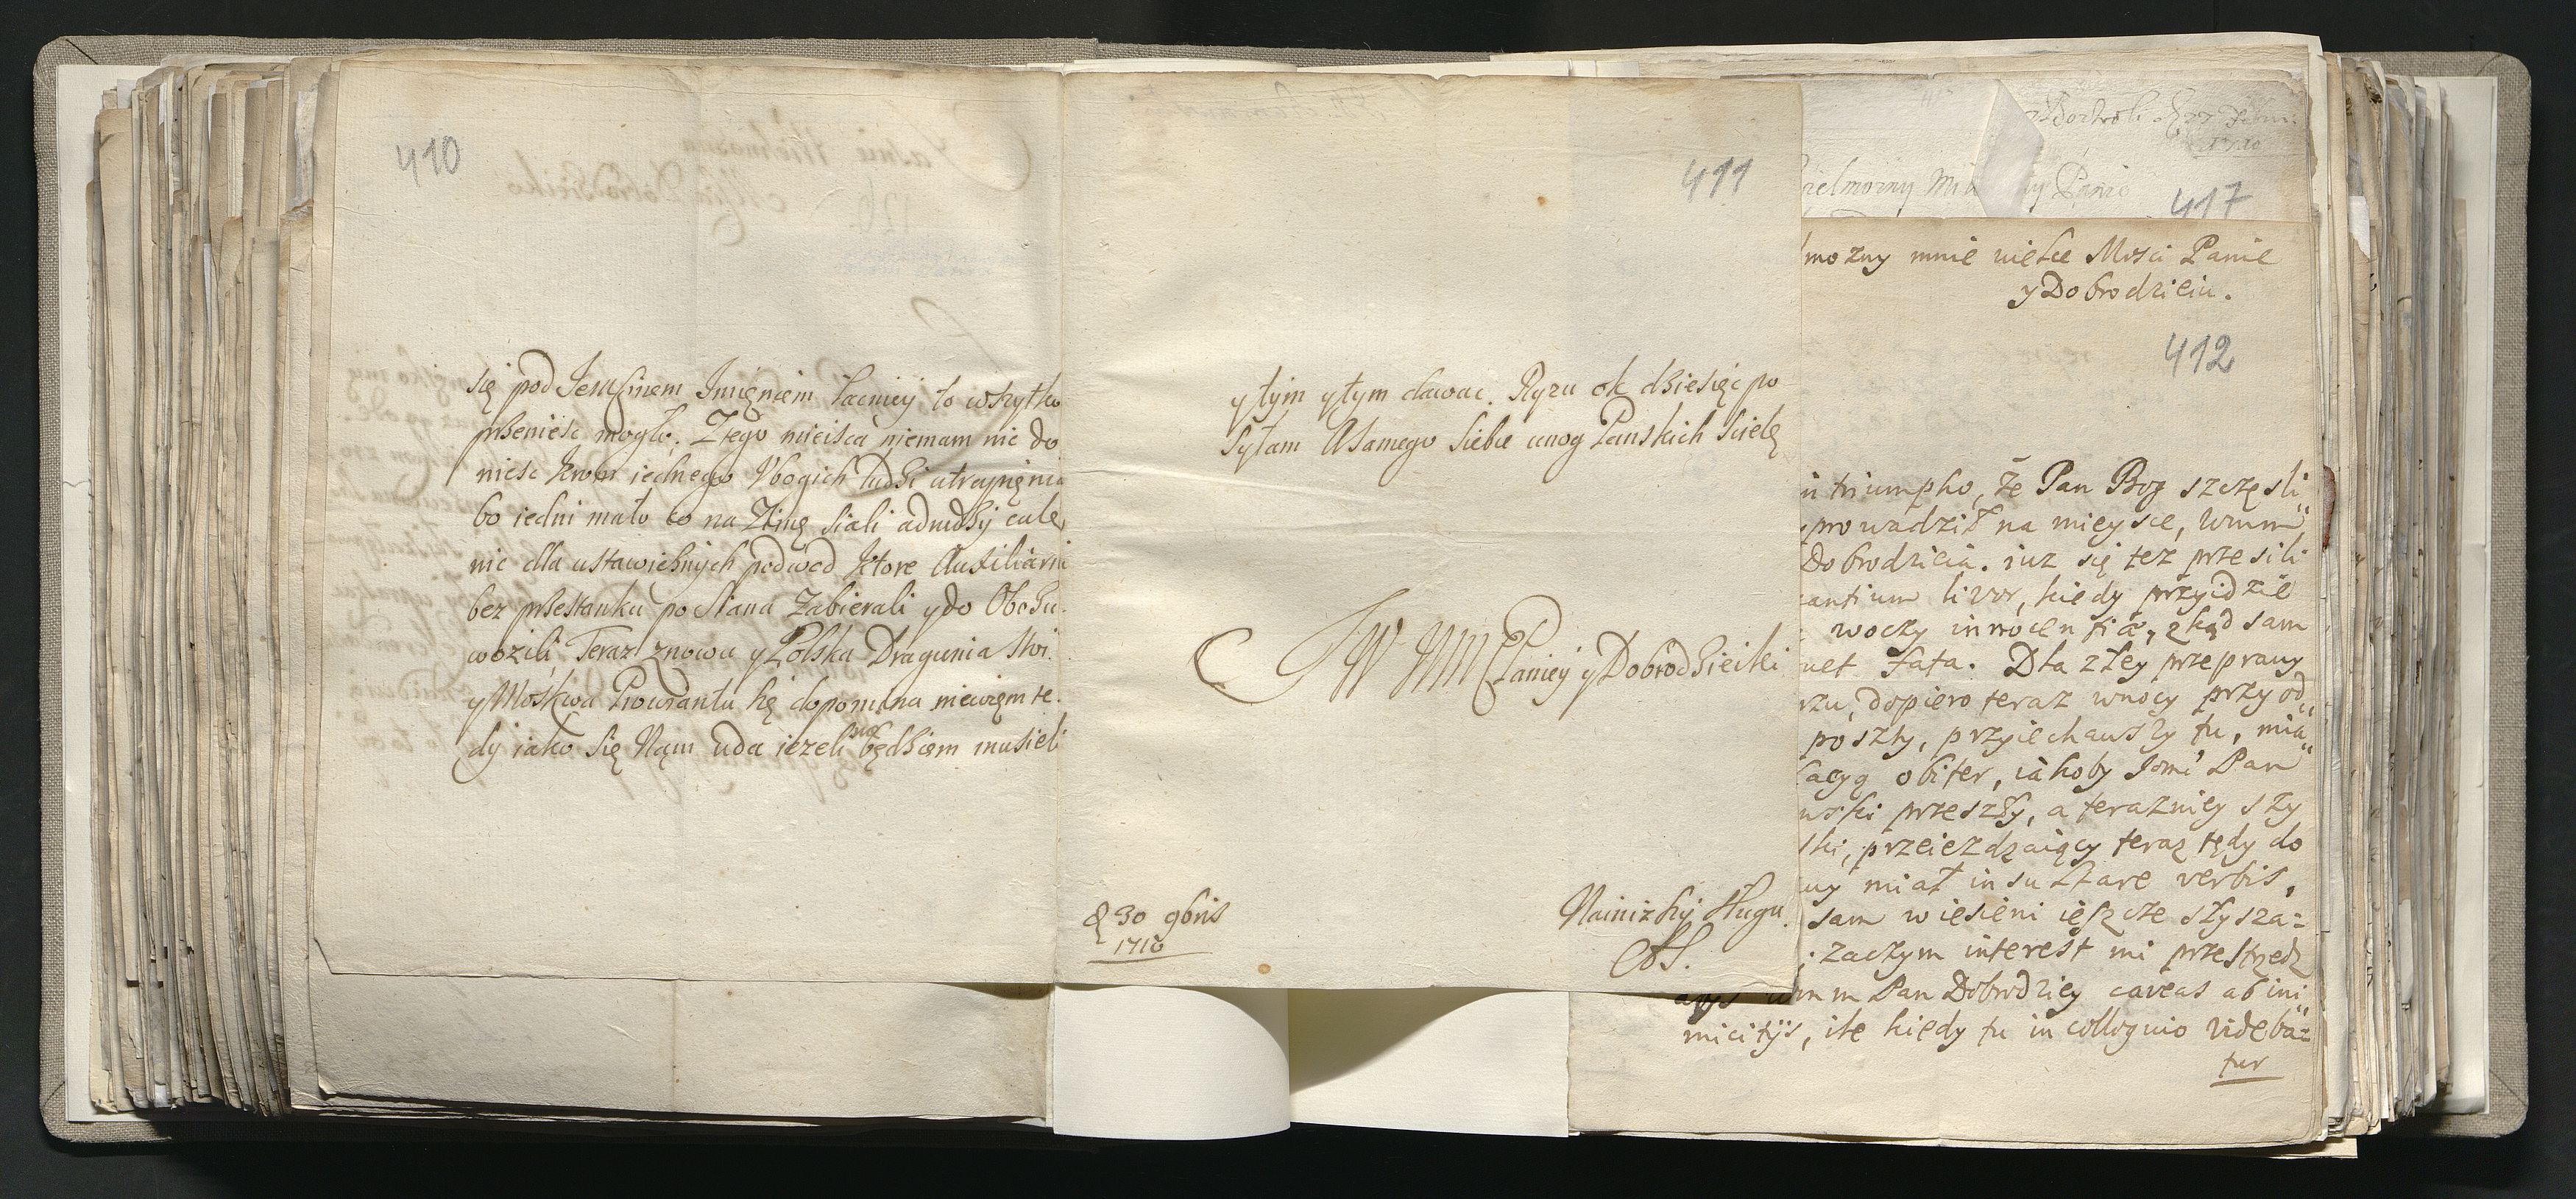 410
się pod Imięniem łacniey to wszytko
przenieść mogło. Z tego mieisca niemam nic do
niesc kromˍ iednego Vbogich ludzi utrapięnia
bo iedni mało co na Zimę siali a drudzy cale
nic dla ustawicznych podwod ktore Auxiliarni
bez przestanku po siana Zabierali y do Obozu
wozili, Teraz znowu y Polska Dragunia stoi
y Moskwa Prowiantu się dopomina niewięm te
dy iako się Nąm uda iezeli
nie
będziem musieli
411
y tym y tym dawac. Ryzu ok dziesięć po
syłam A samego siebie u nog Panskich scielę
JW MM Paniey y Dobrodzieiki
Nainizszy Sługa
AS.
D 30 9bris
1710
417
możny mnie wielce Mosci Panie
y Dobrodzieiu.
412
triumpho, że Pan Bog szczęsli"
prowadził na mieysce, wmm"
Dobrodzieia. iuz się tez przesili
antium livor, kiedy przyidzie
w oczy innocentia, zkąd sam
fata. Dla złey przeprawy
dopiero teraz w nocy przy od"
poszty, przyiechawszy tu, mia"
obiter, iakoby Jomć Pan
przeszły, a teraznieyszy
przeiezdzaiący teraz tędy do
miał insultare verbis,
sam w iesieni ieszcze słysza=
zaczym interest mi przestrzedz
abys wmm Pan Dobrodziey caveas ab ini"
micitÿs, ile kiedy tu in colloquio videba=
tur